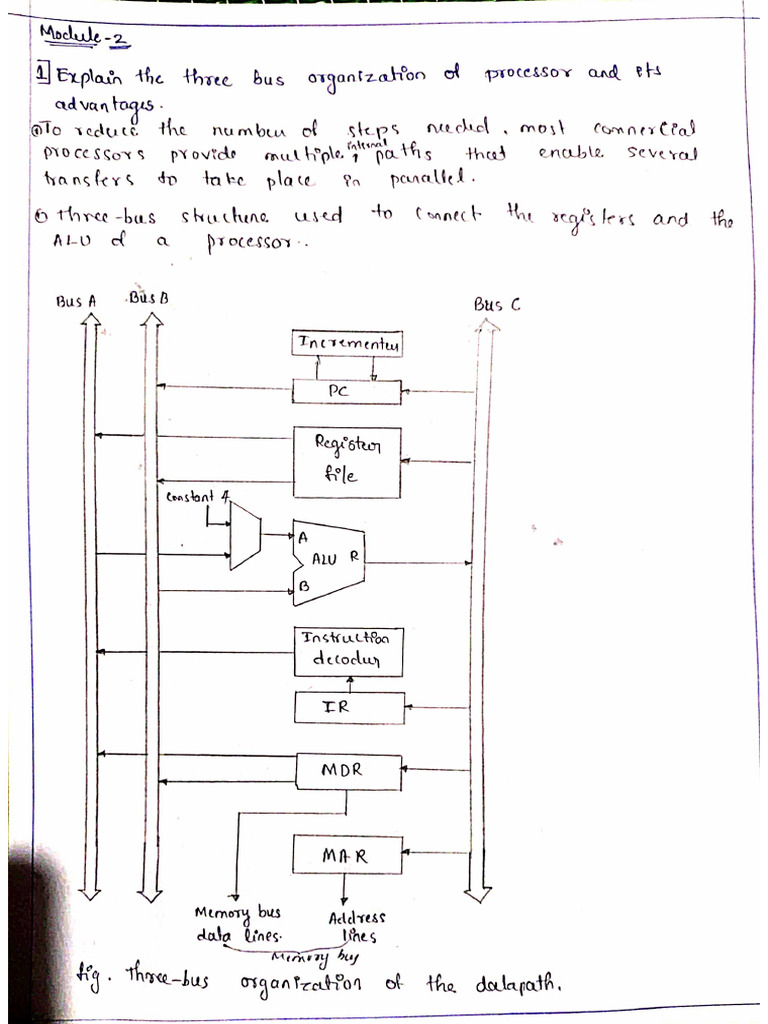 Module-2
1 Explain the three bus organization of processor and its
advantages.
To reduce the number of steps needed, most commercial
processors provide multiple internal paths that enable several
transfers to take place in parallel.
Three-bus structure used to connect the registers and the
ALU of a processor..
Bus A Bus B Bus C
Incrementer
PC
Register
file
Constant 4
A
ALU R
B
Instruction
decoder
IR
MDR
MAR
Memory bus
data lines.
Address
lines
Memory bus
fig. Three-bus organization of the datapath.